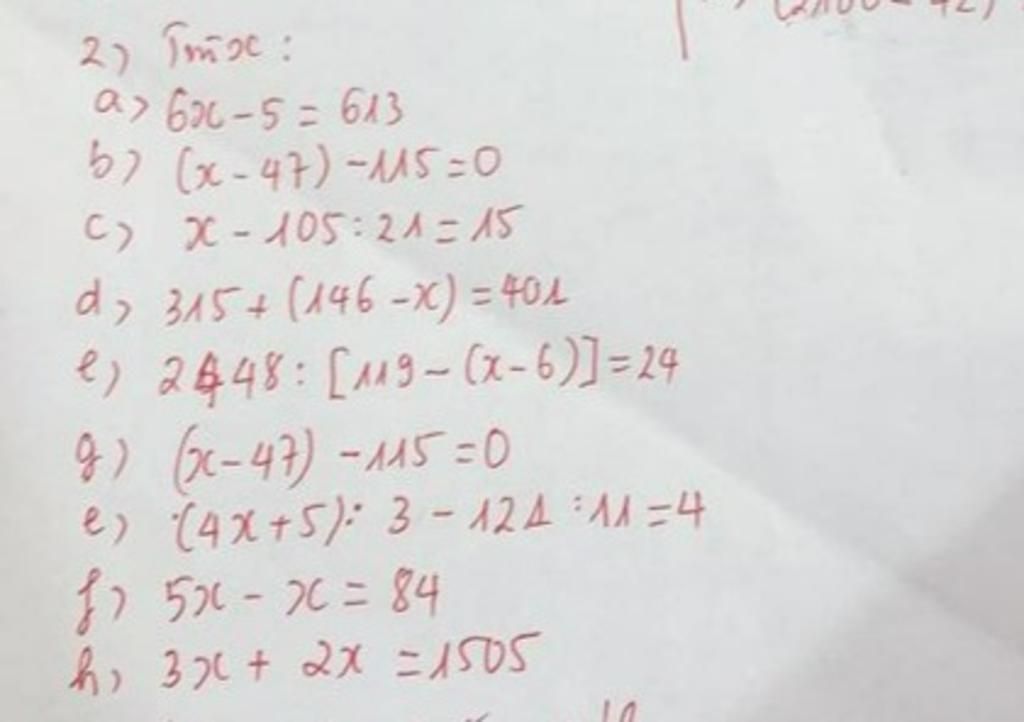 2) Tìm x :
a) 6x - 5 = 613
b) (x - 47) - 115 = 0
c) x - 105 : 21 = 15
d) 315 + (146 - x) = 401
e) 2448 : [119 - (x - 6)] = 24
g) (x - 47) - 115 = 0
e) (4x + 5) : 3 - 121 : 11 = 4
f) 5x - x = 84
h) 3x + 2x = 1505